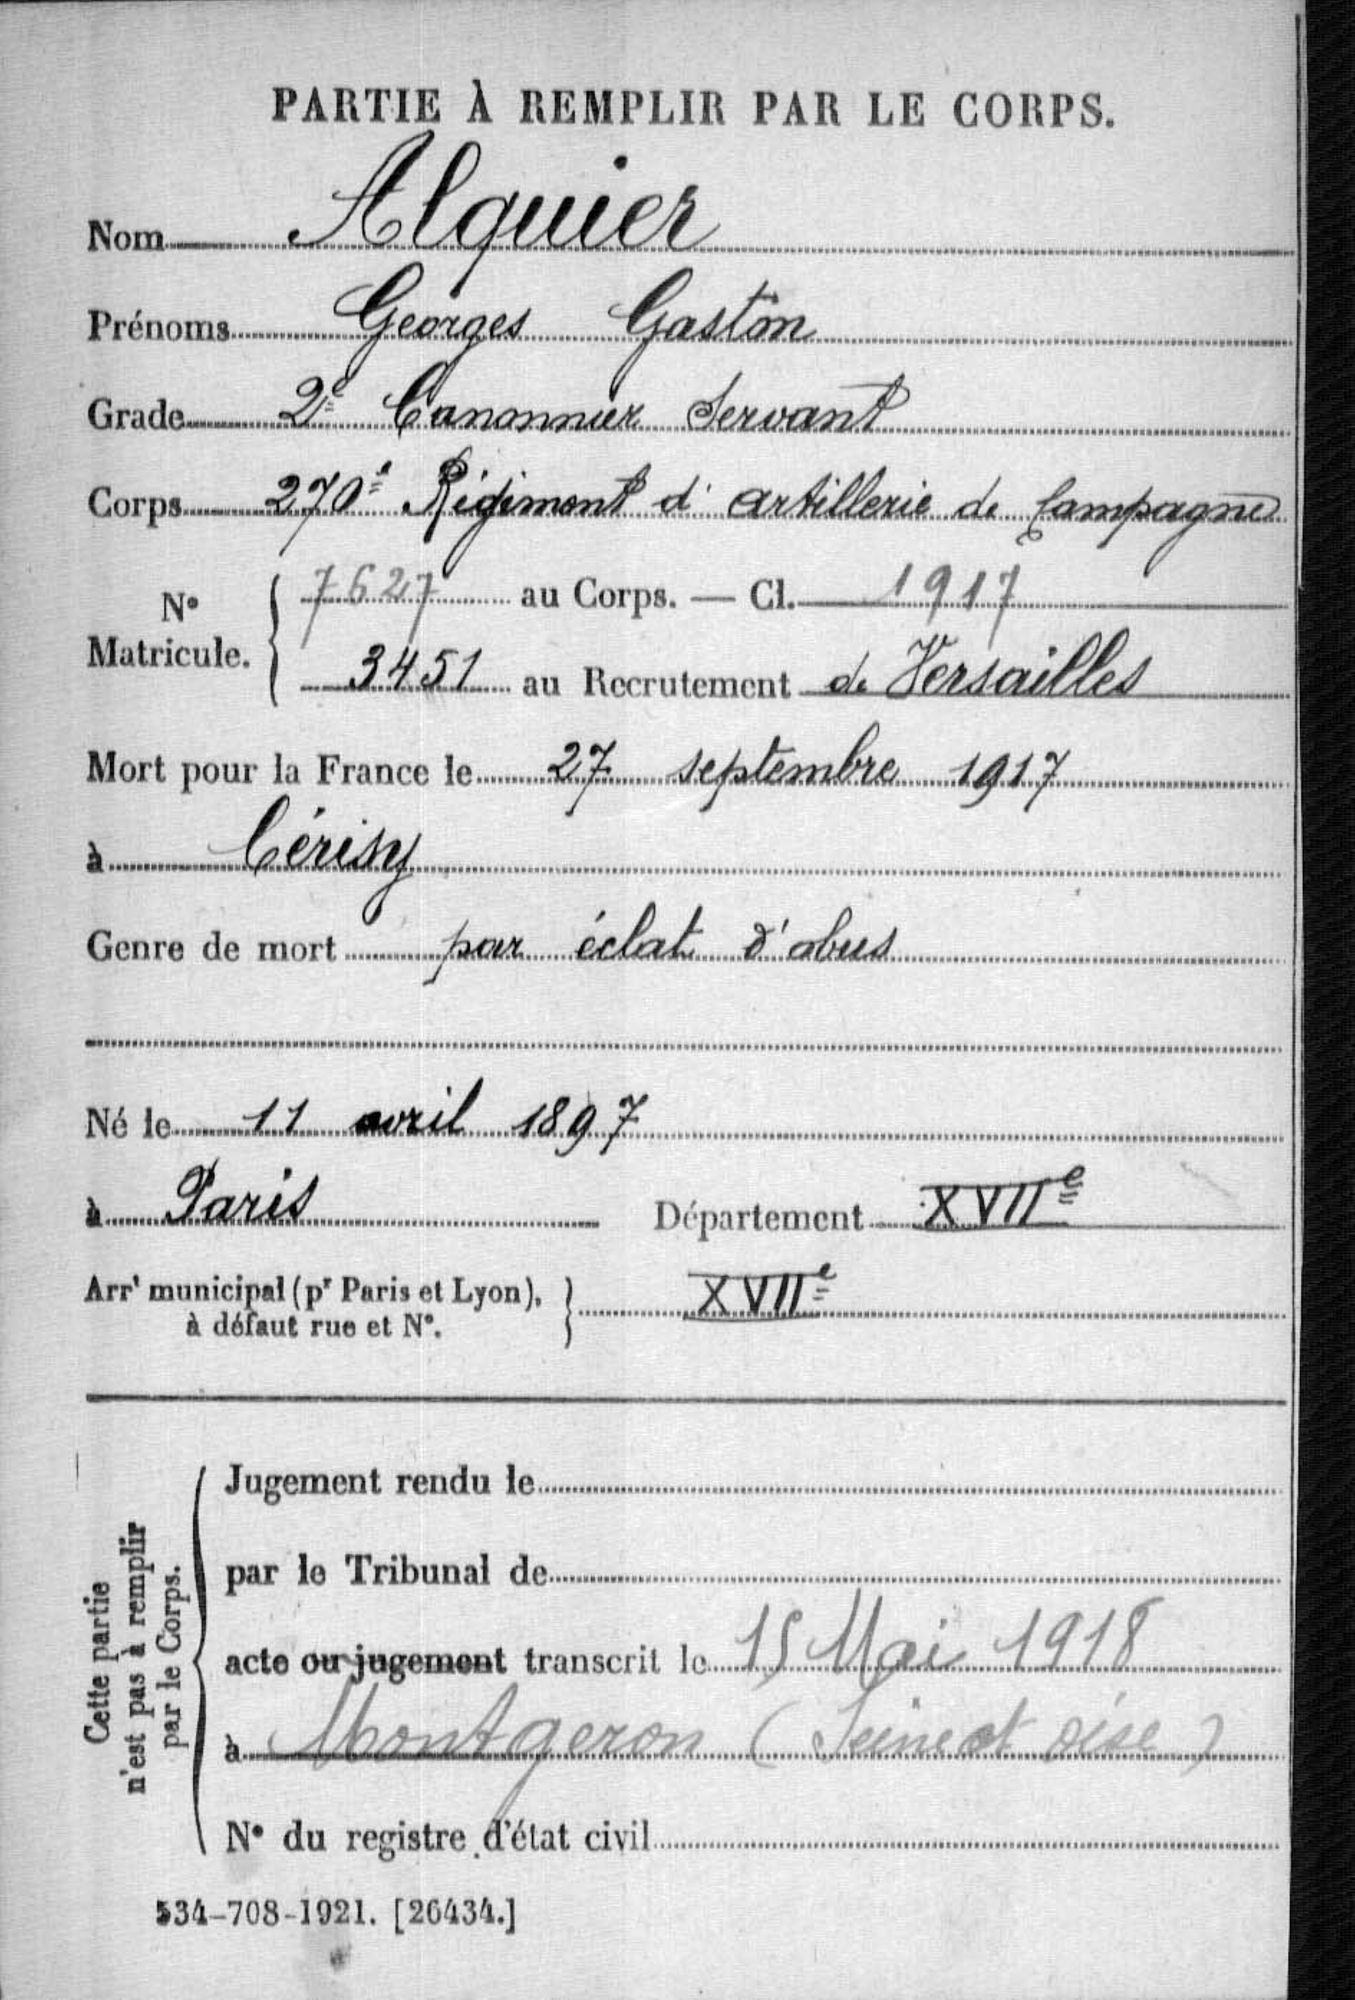 PARTIE À REMPLIR PAR LE CORPS.
Nom Alquier
Prénoms Georges Gaston
Grade 2e Canonnier Servant
Corps 270e Régiment d'artillerie de Campagne
N° Matricule. 7627 au Corps. — Cl. 1917
3451 au Recrutement de Versailles
Mort pour la France le 27 septembre 1917
à Cérisy
Genre de mort par éclat d'obus
Né le 11 avril 1897
à Paris Département XVIIe
Arrt municipal (pr Paris et Lyon), XVIIe
à défaut rue et N°.
Cette partie
n'est pas à remplir
par le Corps.
Jugement rendu le
par le Tribunal de
acte ou jugement transcrit le 15 Mai 1918
à Montgeron (Seine et Oise)
N° du registre d'état civil
534-708-1921. [26434.]